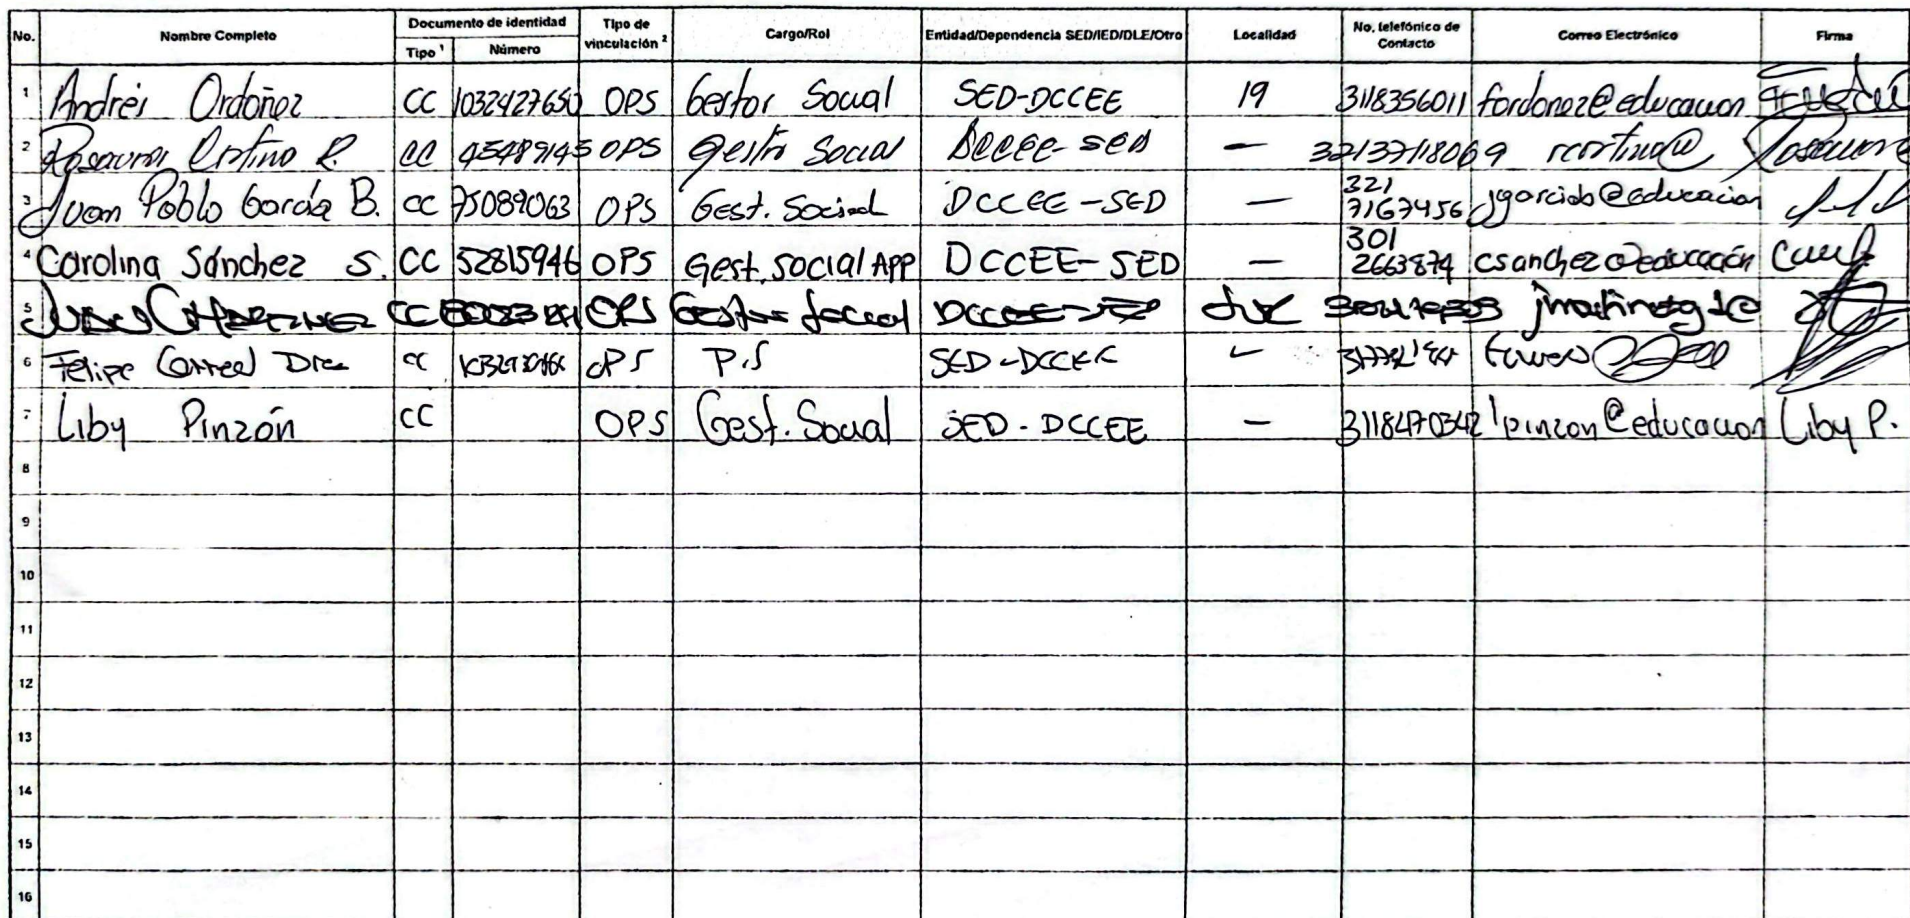 No. Nombre Completo Documento de identidad Tipo de vinculación ² Cargo/Rol Entidad/Dependencia SED/IED/DLE/Otro Localidad No. telefónico de Contacto Correo Electrónico Firma
Tipo ¹ Número
1 Andrés Ordoñez CC 1032427650 OPS Gestor Social SED-DCCEE 19 3118356011 fordonez@educacion
2 CC 45489145 OPS Social DCCEE-SED — 32137118069
3 Juan Pablo García B. CC 75089063 OPS Gest. Social DCCEE-SED — 321 7167456 jgarciab@educacion
4 Carolina Sánchez S. CC 52815946 OPS Gest. Social APP DCCEE-SED — 301 2663874 csanchez@educación
5 CC OPS Gestor Social DCCEE-SED
6 Felipe CC OPS P.S SED-DCCEE
7 Liby Pinzón CC OPS Gest. Social SED-DCCEE — 3118470342 lpinzon@educacion Liby P.
8
9
10
11
12
13
14
15
16